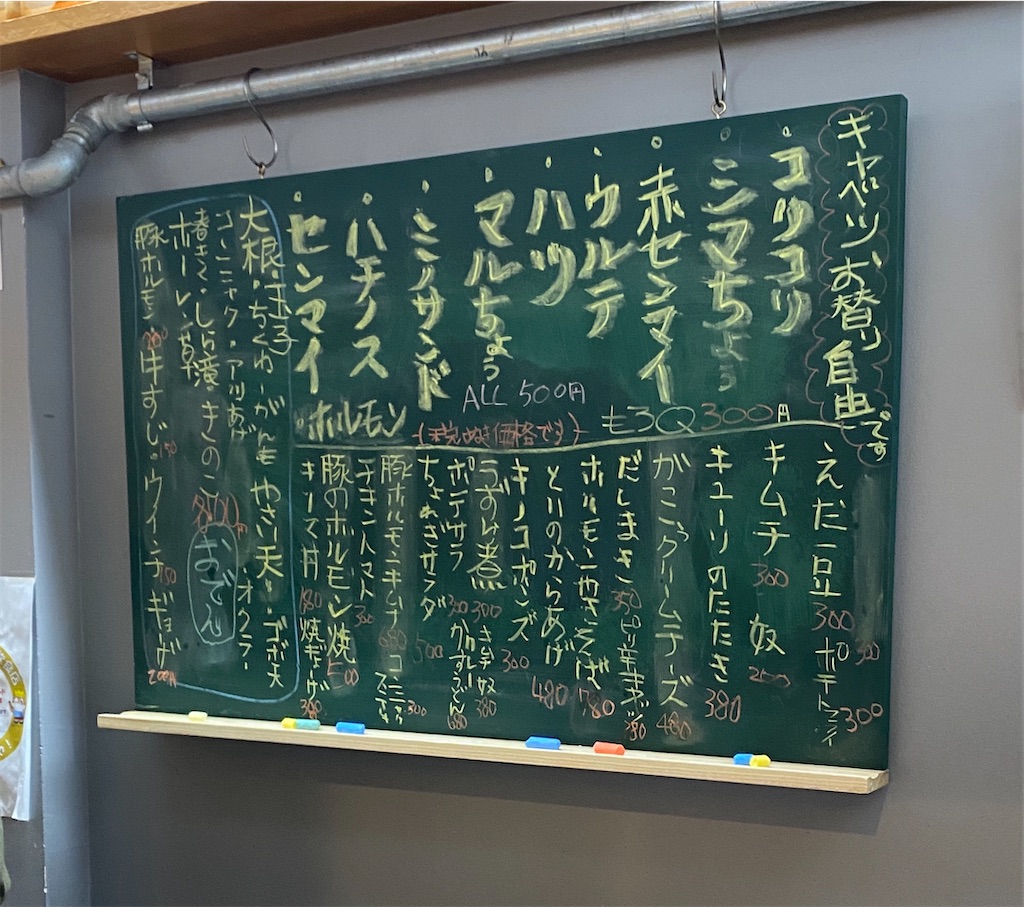 キャベツお替り自由です
。コリコリ
。シマちょう
。赤センマイ
。ウルテ
。ハツ
。マルちょう
。ミノサンド
。ハチノス
。センマイ
ALL 500円
ホルモン
(税ぬき価格です)
モ3Q300円
えだ豆 300
ポテトフライ 300
キムチ 300
奴 200
キューリのたたき 380
がこっクリームチーズ 480
だしまき 350
ピリ辛キャベツ
ホルモンやきそば 780
とりのからあげ 480
キノコポンズ 300
うずけ煮 300
キムチ奴 380
ポテサラ 300
カレーかすうどん 680
ちょれぎサラダ 500
豚ホルモンキムチ 680
300
チキントマト 300
豚のホルモン焼 500
キーマ丼
焼ぎょーざ 380
大根・玉子
ちくわ・がんも
やさい天・ゴボ天
こんニャク・アツあげ
オクラ
春きく・しら滝
きのこ
ホーレン草
各100円
おでん
豚ホルモン
牛すじ 150
ウインナー 150
ギョーザ 200円